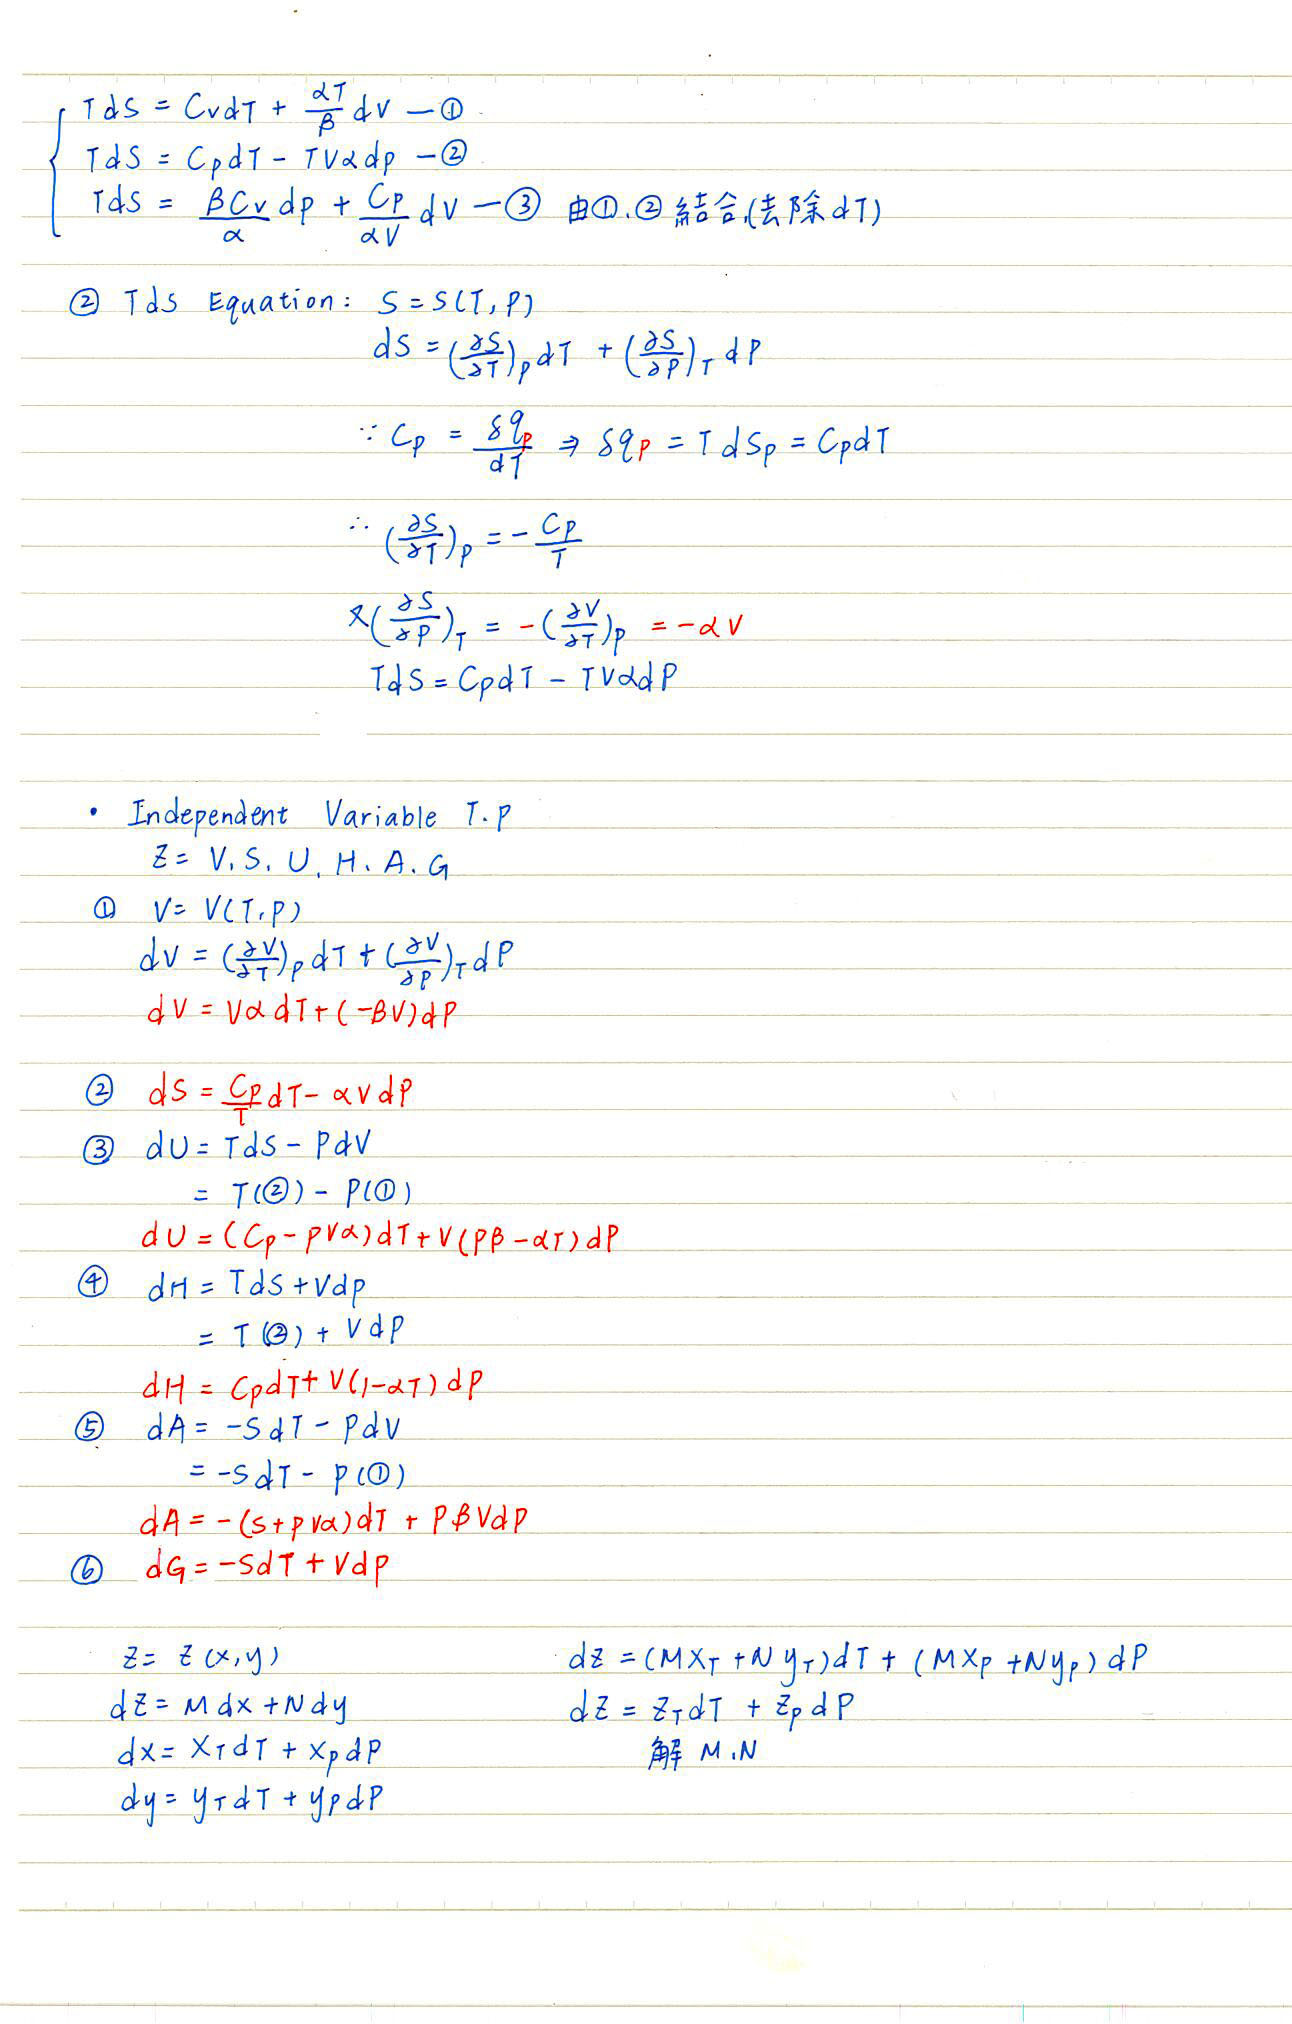 TdS = CvdT + αT/β dV —①
TdS = CpdT - TVαdp —②
TdS = βCv/α dp + Cp/αV dV —③ 由①、②結合,(去除dT)
② Tds Equation: S = S(T, P)
dS = (∂S/∂T)_P dT + (∂S/∂P)_T dP
∵ Cp = δq_P/dT ⇒ δq_P = TdS_P = CpdT
∴ (∂S/∂T)_P = - Cp/T
又(∂S/∂P)_T = -(∂V/∂T)_P = -αV
TdS = CpdT - TVαdP
• Independent Variable T.P
Z = V.S.U.H.A.G
① V = V(T,P)
dV = (∂V/∂T)_P dT + (∂V/∂P)_T dP
dV = VαdT+(-βV)dP
② dS = Cp/T dT - αVdP
③ dU = TdS - PdV
= T(②) - P(①)
dU = (Cp - PVα)dT + V(Pβ - αT)dP
④ dH = TdS + Vdp
= T(②) + VdP
dH = CpdT + V(1-αT)dP
⑤ dA = -SdT - PdV
= -SdT - P(①)
dA = -(S+PVα)dT + PβVdP
⑥ dG = -SdT + VdP
Z = Z(x,y)
dZ = Mdx + Ndy
dx = X_T dT + X_P dP
dy = y_T dT + y_P dP
dz = (MX_T + Ny_T)dT + (MX_P + Ny_P)dP
dz = Z_T dT + Z_P dP
解 M.N